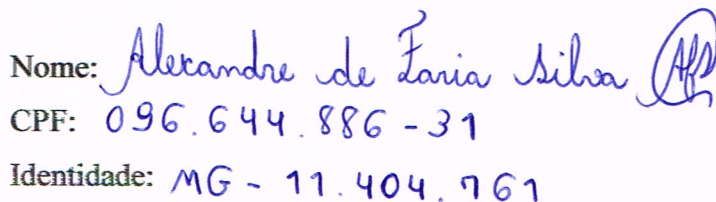 Nome: Alexandre de Faria Silva AFS
CPF: 096.644.886-31
Identidade: MG - 11.404.761